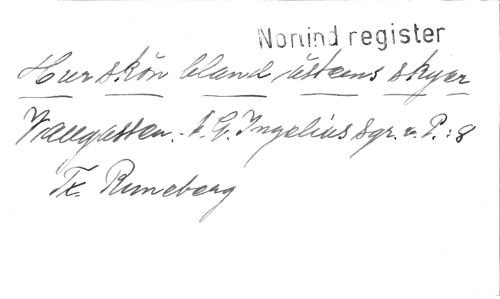 Norlind register
Hur skön bland östens skyar
Vallgossen. A. G. Ingelius sgr. v. P.: 8
Tx. Runeberg